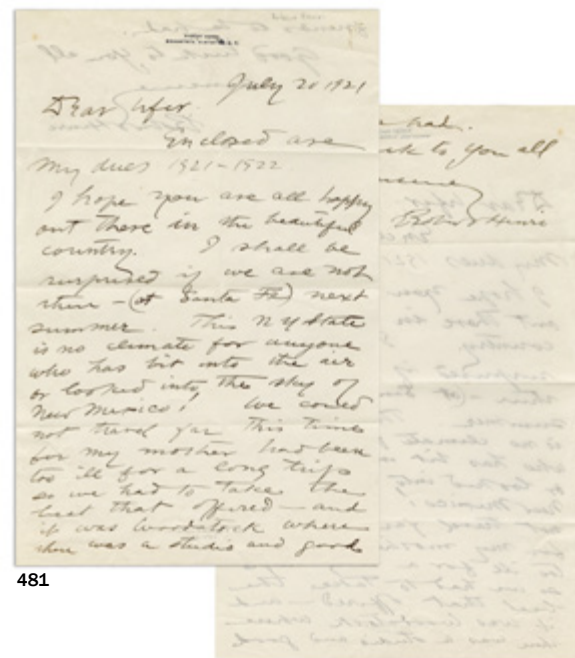 July 20 1921
Dear Ufer.
Enclosed are
my dues 1921-1922
I hope you are all happy
out there in the beautiful
country. I shall be
surprised if we are not
there - (at Santa Fe) next
summer. This N Y State
is no climate for anyone
who has bit into the air
or looked into the sky of
New Mexico! We could
not travel far this time
for my mother had been
too ill for a long trip
so we had to take the
best that offered - and
it was Woodstock where
there was a studio and good
had.
to you all
Robert Henri
481